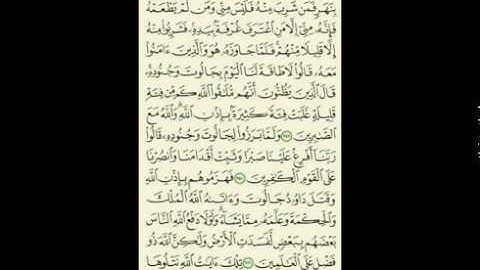 بِنَهَرٍ فَمَن شَرِبَ مِنْهُ فَلَيْسَ مِنِّي وَمَن لَّمْ يَطْعَمْهُ
فَإِنَّهُۥ مِنِّيٓ إِلَّا مَنِ ٱغْتَرَفَ غُرْفَةَۢ بِيَدِهِۦ فَشَرِبُواْ مِنْهُ
إِلَّا قَلِيلًا مِّنْهُمْ فَلَمَّا جَاوَزَهُۥ هُوَ وَٱلَّذِينَ ءَامَنُواْ
مَعَهُۥ قَالُواْ لَا طَاقَةَ لَنَا ٱلْيَوْمَ بِجَالُوتَ وَجُنُودِهِۦ
قَالَ ٱلَّذِينَ يَظُنُّونَ أَنَّهُم مُّلَٰقُواْ ٱللَّهِ كَم مِّن فِئَةٍ
قَلِيلَةٍ غَلَبَتْ فِئَةً كَثِيرَةَۢ بِإِذْنِ ٱللَّهِ وَٱللَّهُ مَعَ
ٱلصَّٰبِرِينَ ٢٤٩ وَلَمَّا بَرَزُواْ لِجَالُوتَ وَجُنُودِهِۦ قَالُواْ
رَبَّنَآ أَفْرِغْ عَلَيْنَا صَبْرًا وَثَبِّتْ أَقْدَامَنَا وَٱنصُرْنَا
عَلَى ٱلْقَوْمِ ٱلْكَٰفِرِينَ ٢٥٠ فَهَزَمُوهُم بِإِذْنِ ٱللَّهِ
وَقَتَلَ دَاوُۥدُ جَالُوتَ وَءَاتَىٰهُ ٱللَّهُ ٱلْمُلْكَ
وَٱلْحِكْمَةَ وَعَلَّمَهُۥ مِمَّا يَشَآءُ وَلَوْلَا دَفْعُ ٱللَّهِ ٱلنَّاسَ
بَعْضَهُم بِبَعْضٍ لَّفَسَدَتِ ٱلْأَرْضُ وَلَٰكِنَّ ٱللَّهَ ذُو
فَضْلٍ عَلَى ٱلْعَٰلَمِينَ ٢٥١ تِلْكَ ءَايَٰتُ ٱللَّهِ نَتْلُوهَا